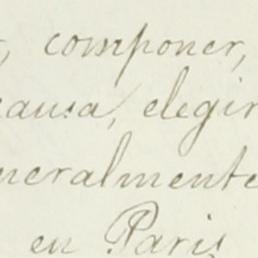 , componer,
causa, elegir
neralmente
en Paris